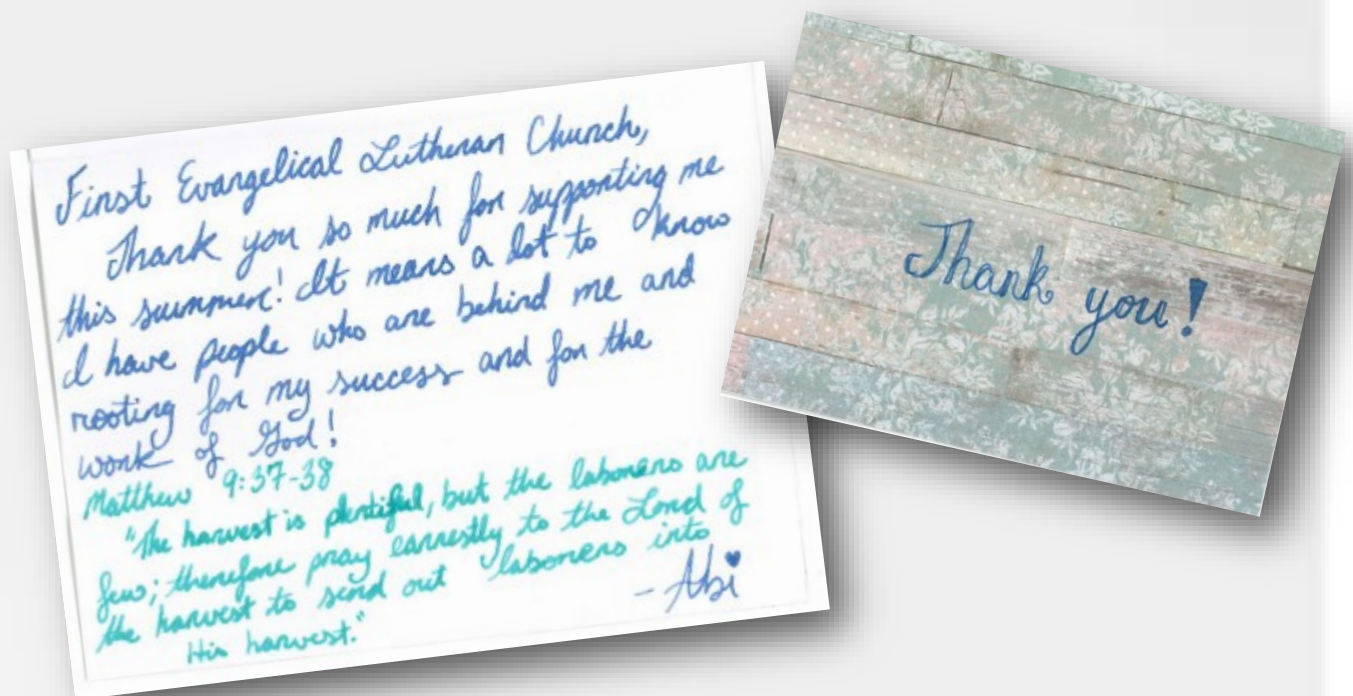 First Evangelical Lutheran Church,
Thank you so much for supporting me
this summer! It means a lot to know
I have people who are behind me and
rooting for my success and for the
work of God!
Matthew 9:37-38
"The harvest is plentiful, but the laborers are
few; therefore pray earnestly to the Lord of
the harvest to send out laborers into
His harvest."
- Abi
Thank you!